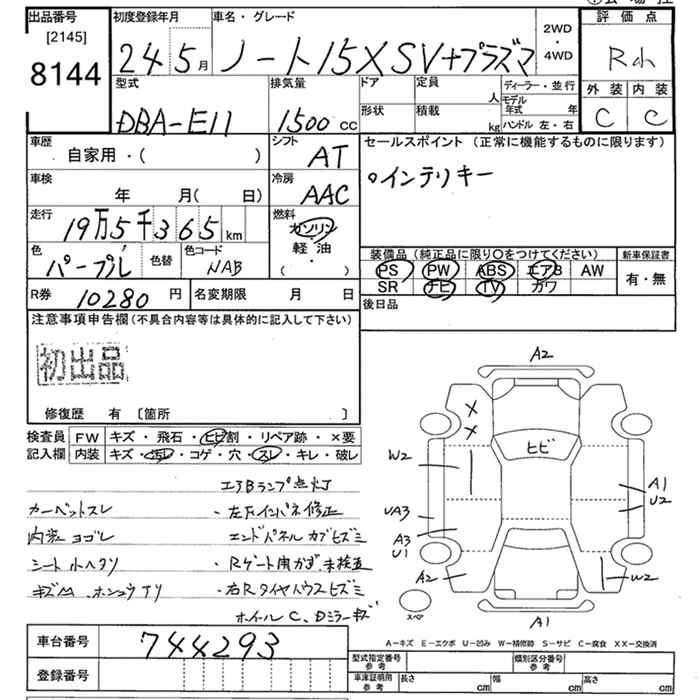 出品番号 [2145] 8144
初度登録年月 24 5月
車名・グレード ノート15X SV+プラズマ
2WD・4WD
評価点 RA
外装 内装
C C
型式 DBA-E11
排気量 1500cc
ドア 定員 人
形状 積載 kg
ディーラー・並行
モデル年式 年
ハンドル 左・右
車歴 自家用・( )
シフト AT
セールスポイント (正常に機能するものに限ります)
○インテリキー
車検 年 月( 日)
冷房 AAC
走行 19万5千365km
燃料 ガソリン
軽・油
( )
色 パープル 色替 色コード NAB
装備品 (純品に限り○をつけてください) 新車保証書
PS PW ABS エアB AW 有・無
SR ナビ TV カワ
R券 10280円 名変期限 月 日
後日品
注意事項申告欄(不具合内容等は具体的に記入して下さい)
初出品
修復歴 有 〔箇所 〕
検査員 FW キズ・飛石・ヒビ割・リペア跡・×要
記入欄 内装 キズ・汚レ・コゲ・穴・スレ・キレ・破レ
エアBランプ点灯
カーペットスレ ・左Fインパネ修正
内装ヨゴレ エンドパネルカブヒズミ
シート小ヘタリ ・Rゲート開かず、未検査
・右Rタイヤハウスヒズミ
ホイールC、Dミラーキズ
A2
X
X
ヒビ
W2
A1
U2
UA3
A3
U1
A2
W2
スペア
A1
A-キズ E-エクボ U-凹み W-補修跡 S-サビ C-腐食 XX-交換済
車台番号 744293
登録番号
型式指定番号 参考 類別区分番号 参考
車庫証明用 参考 長さ cm 幅 cm 高さ cm